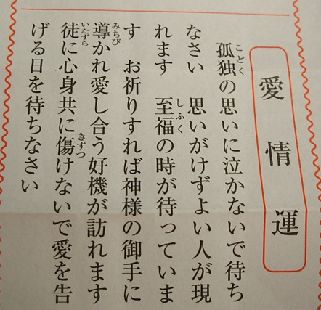 愛情運
孤独の思いに泣かないで待ち
なさい　思いがけずよい人が現
れます　至福の時が待っていま
す　お祈りすれば神様の御手に
導かれ愛し合う好機が訪れます
徒に心身共に傷けないで愛を告
げる日を待ちなさい